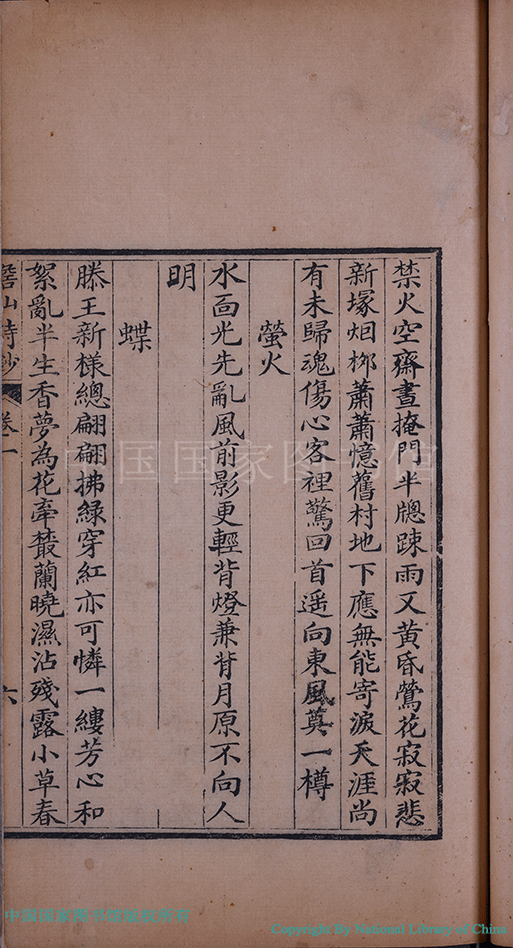 禁火空齋晝掩門半牕踈雨又黃昏鶯花寂寂悲
新塚烟栁蕭蕭憶舊村地下應無能寄淚天涯尚
有未歸魂傷心客裡驚回首遥向東風奠一樽
螢火
水面光先亂風前影更輕背燈兼背月原不向人
明
蝶
滕王新様總翩翩拂綠穿紅亦可憐一縷芳心和
絮亂半生香夢為花牽叢蘭曉濕沾殘露小草春
山詩鈔 卷一 六
中国国家图书馆
中国国家图书馆版权所有
Copyright By National Library of China